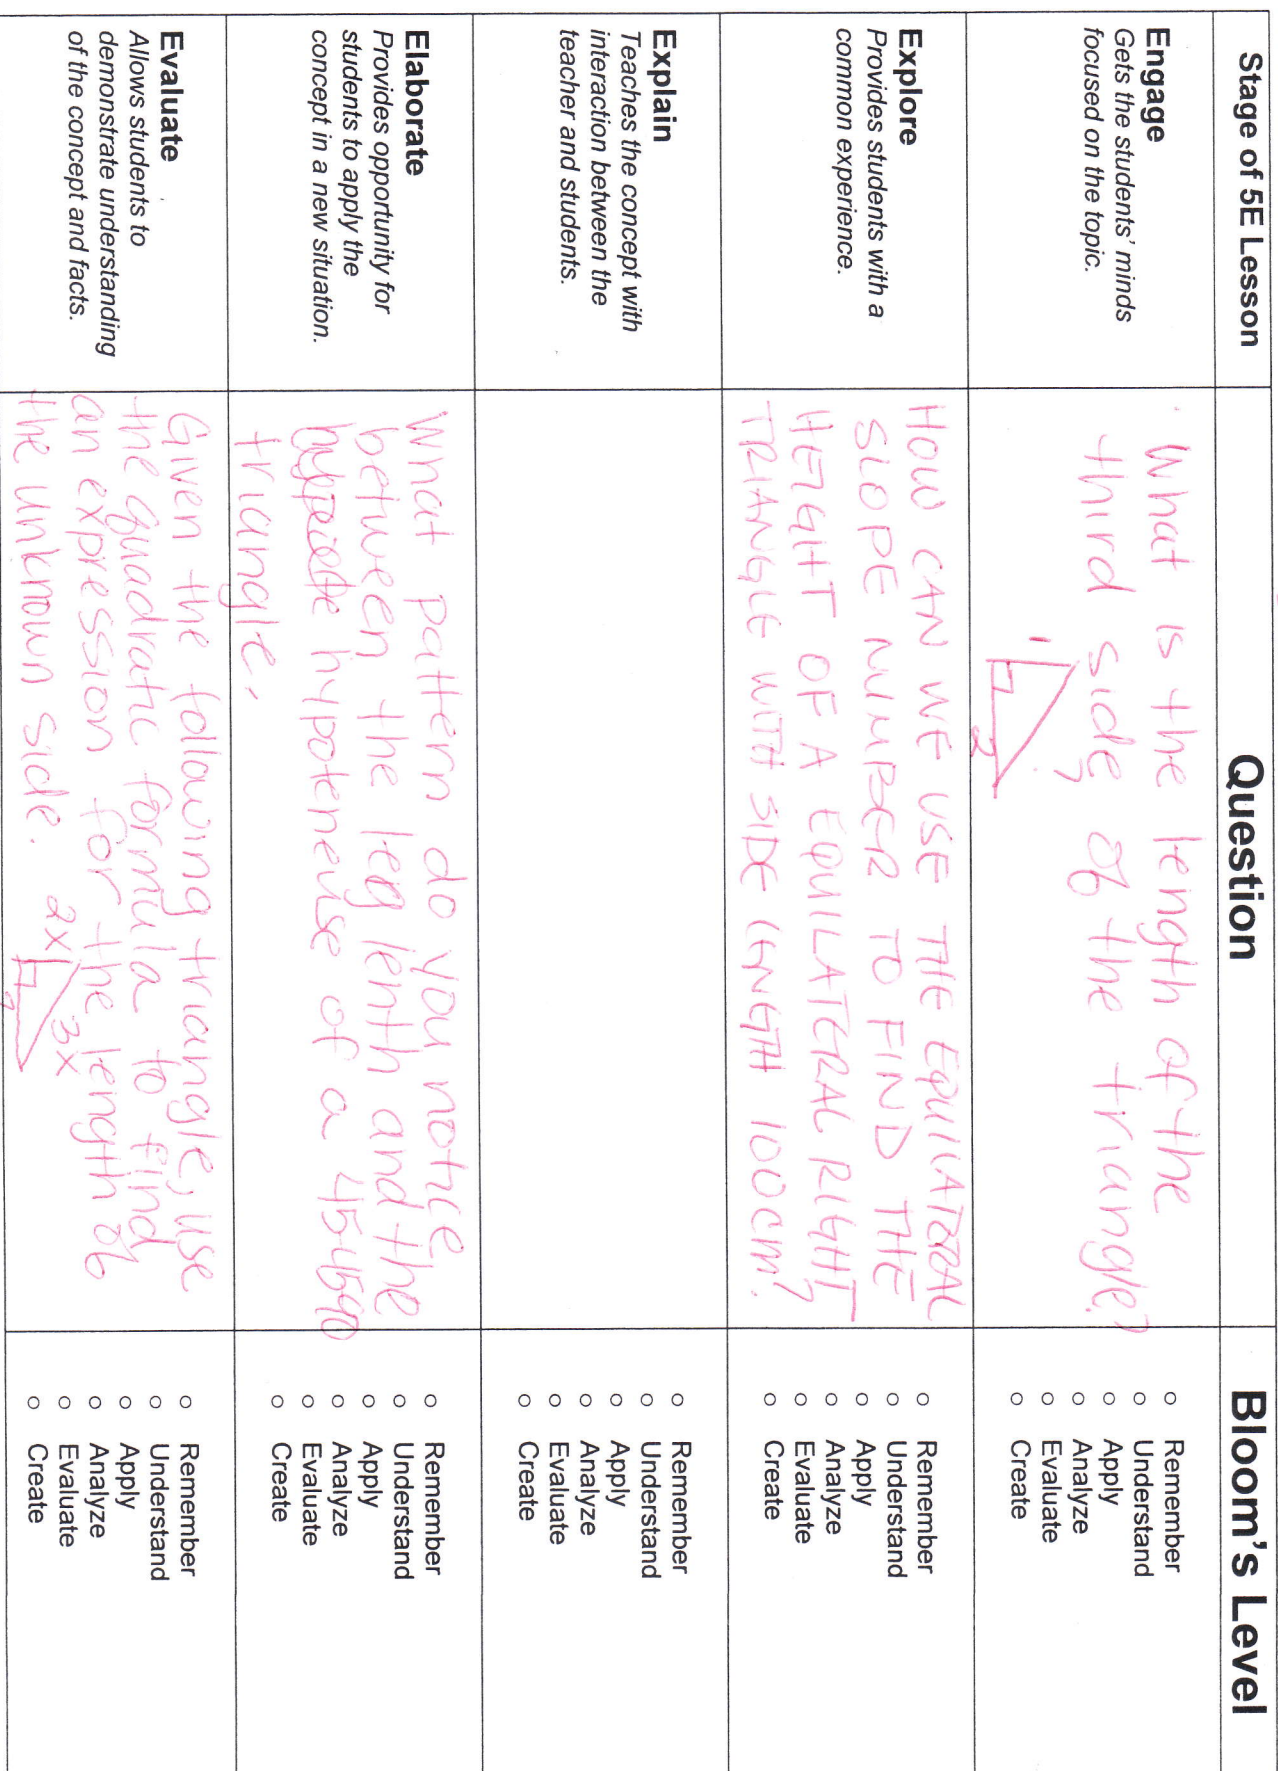 Stage of 5E Lesson
Question
Bloom's Level
Engage
Gets the students' minds
focused on the topic.
What is the length of the
third side of the triangle?
1
2
○ Remember
○ Understand
○ Apply
○ Analyze
○ Evaluate
○ Create
Explore
Provides students with a
common experience.
HOW CAN WE USE THE EQUILATERAL
SLOPE NUMBER TO FIND THE
HEIGHT OF A EQUILATERAL RIGHT
TRIANGLE WITH SIDE LENGTH 100cm?
○ Remember
○ Understand
○ Apply
○ Analyze
○ Evaluate
○ Create
Explain
Teaches the concept with
interaction between the
teacher and students.
○ Remember
○ Understand
○ Apply
○ Analyze
○ Evaluate
○ Create
Elaborate
Provides opportunity for
students to apply the
concept in a new situation.
What pattern do you notice
between the leg lenth and the
hypotenuse of a 454590
triangle.
○ Remember
○ Understand
○ Apply
○ Analyze
○ Evaluate
○ Create
Evaluate
Allows students to
demonstrate understanding
of the concept and facts.
Given the following triangle, use
the quadratic formula to find
an expression for the length of
the unknown side.
2x
3x
?
○ Remember
○ Understand
○ Apply
○ Analyze
○ Evaluate
○ Create